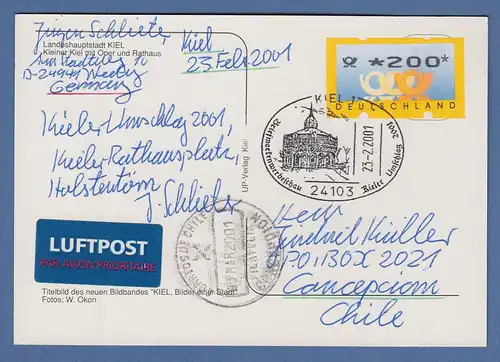 Jürgen Schlieter,
Landeshauptstadt KIEL
Kleiner Kiel mit Oper und Rathaus
Am Stadtweg 10
D-24941 Weding
Germany
Kiel
23. Feb. 2001
*200*
DEUTSCHLAND
KIEL 1
Briefmarkenwerbeschau Kieler Umschlag 2001
23-2.2001
24103
Kieler Umschlag 2001,
Kieler Rathausplatz,
Holstentörn
J. Schlieter
UP-Verlag Kiel
LUFTPOST
PAR AVION PRIORITAIRE
CORREOS DE CHILE
MAR 2001
Herr
P.O. BOX 2021
Concepcion
Chile
Titelbild des neuen Bildbandes "KIEL, Bilder einer Stadt"
Fotos: W. Okon